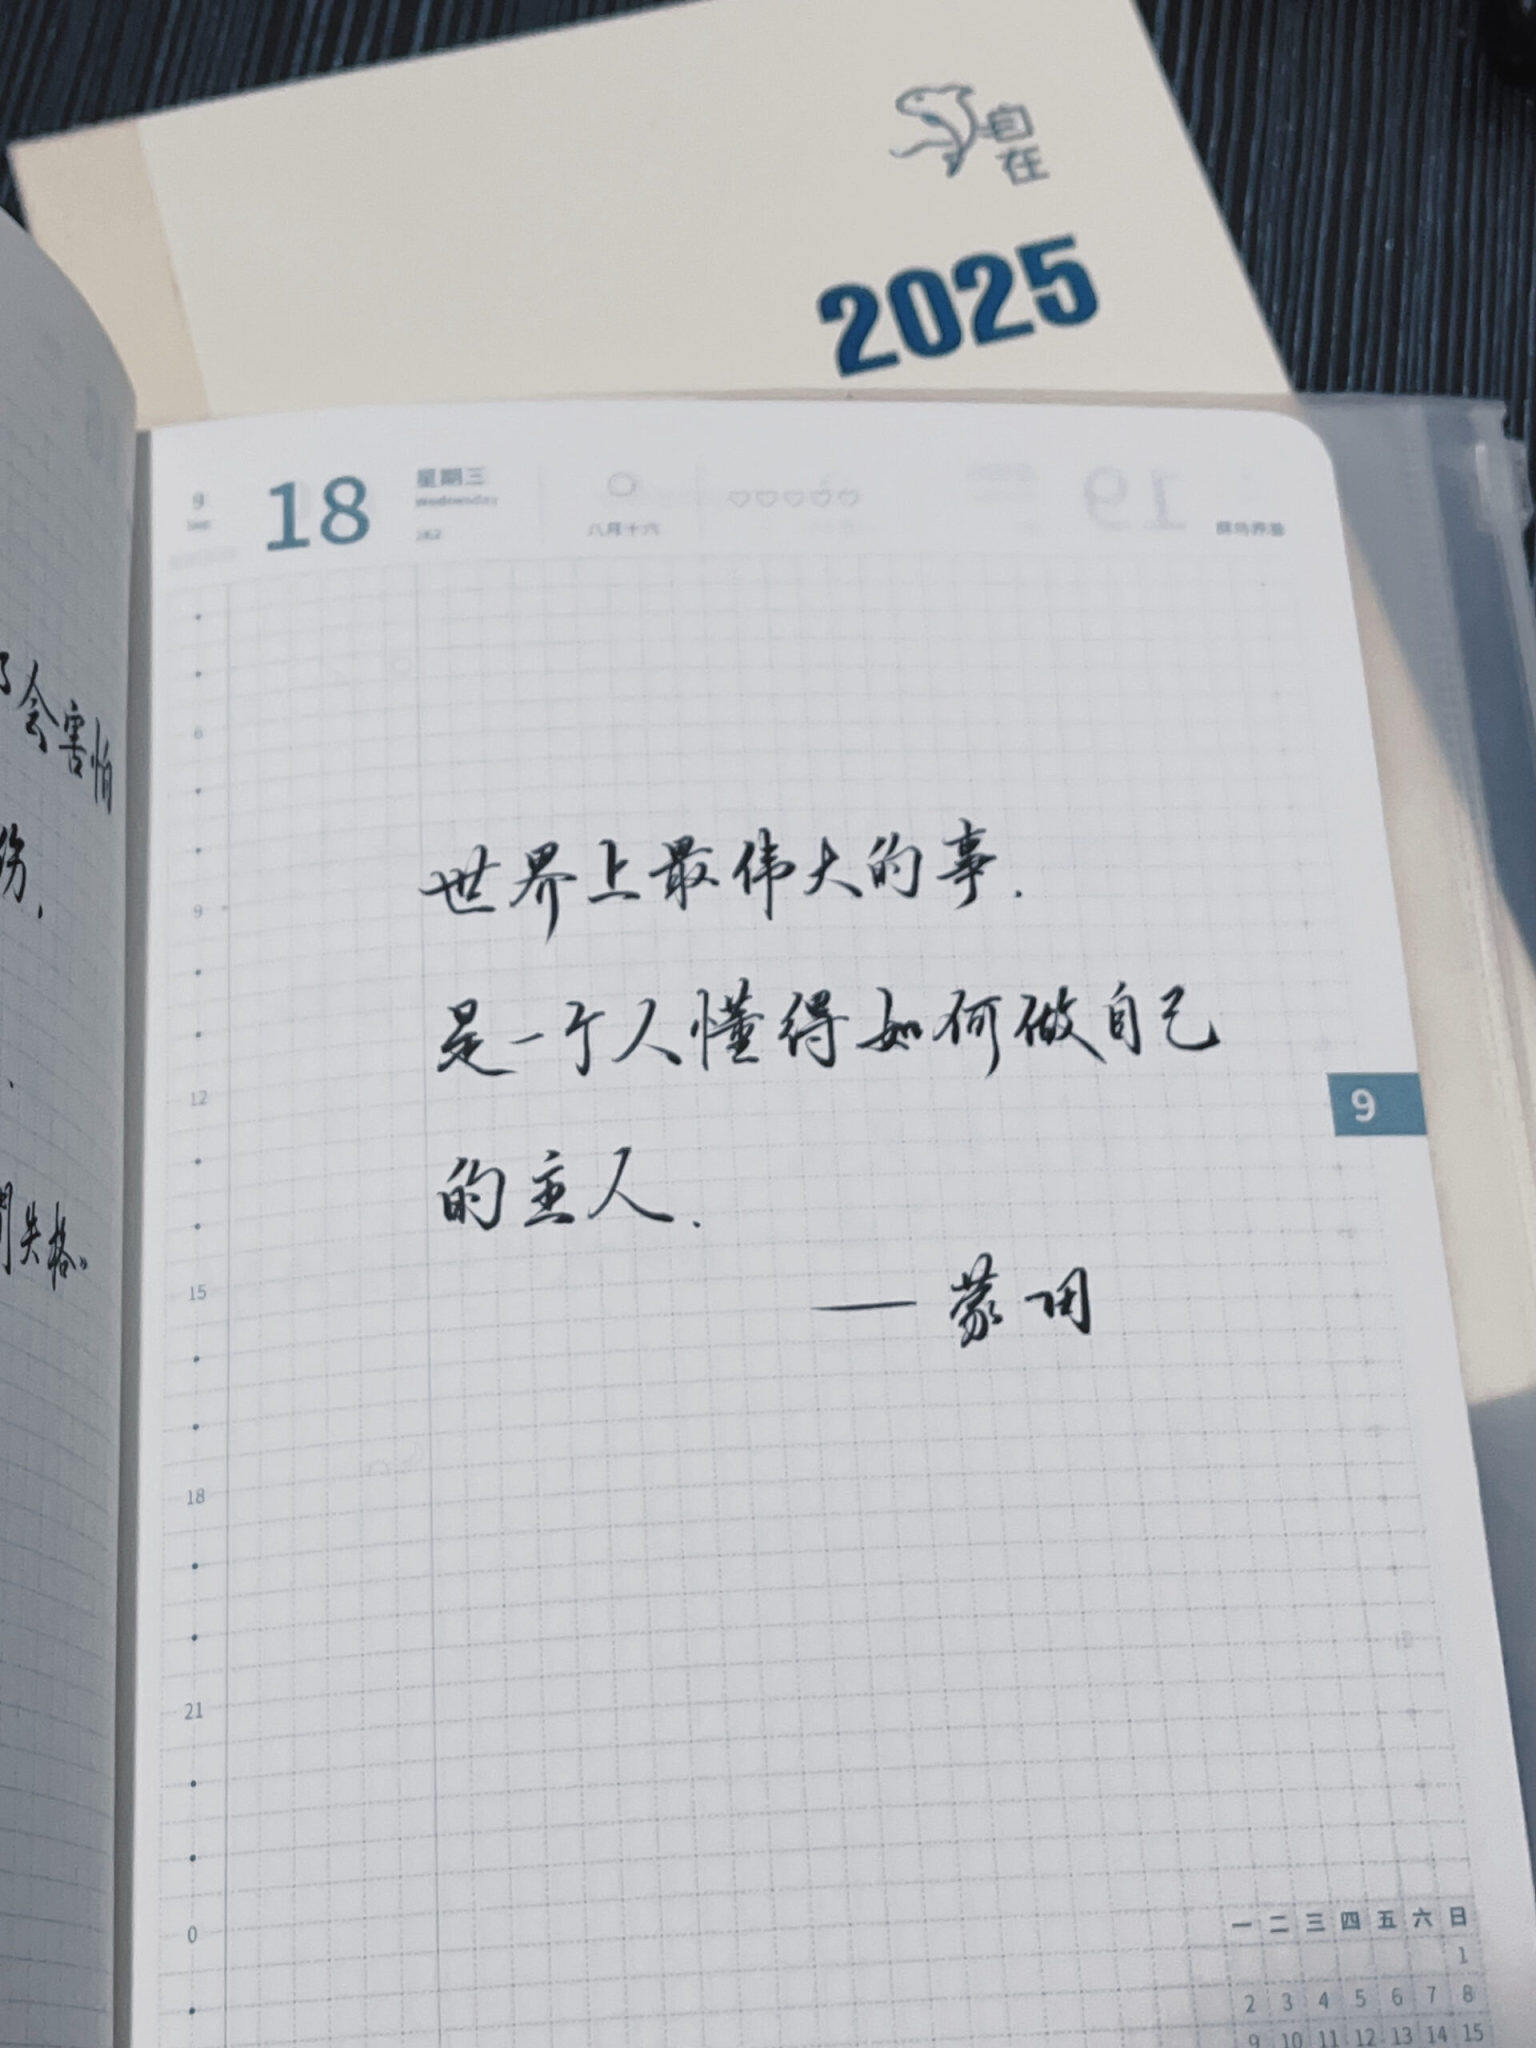 自
在
2025
9
18
星期三
Wednesday
262
八月十六
19
会害怕
伤.
失格。
6
世界上最伟大的事.
9
是一个人懂得如何做自己
12
9
的主人.
15
——蒙田
18
21
0
一 二 三 四 五 六 日
1
2 3 4 5 6 7 8
9 10 11 12 13 14 15